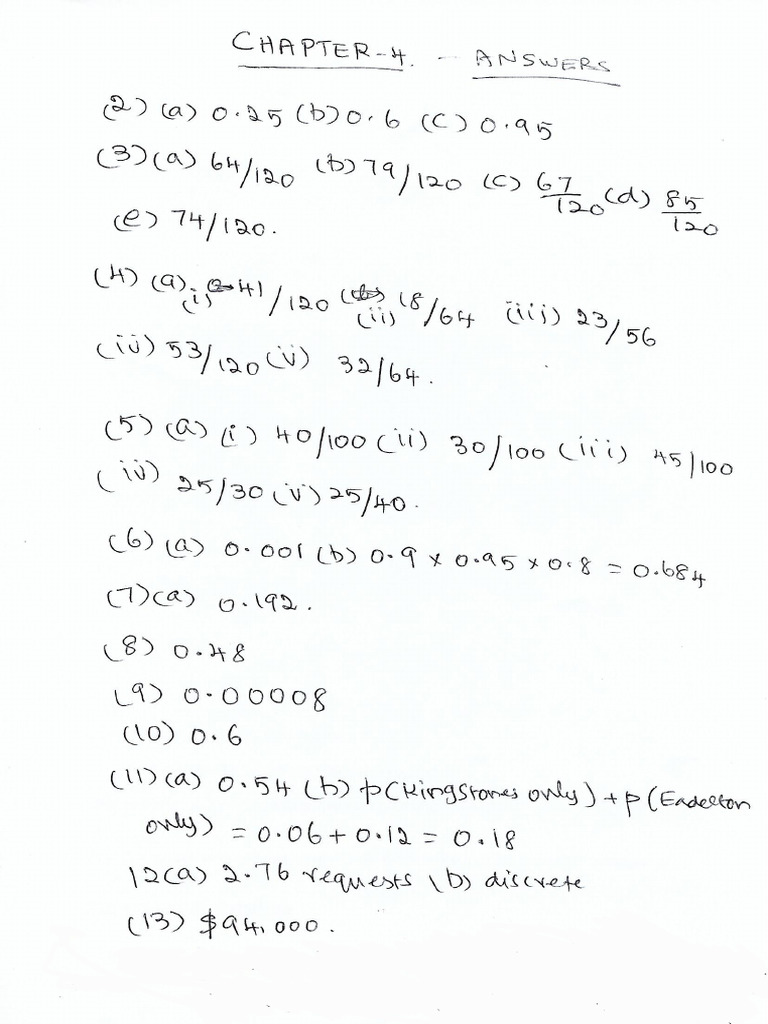 CHAPTER-4. - ANSWERS
(2) (a) 0.25 (b) 0.6 (c) 0.95
(3) (a) 64/120 (b) 79/120 (c) 67/120 (d) 85/120
(e) 74/120.
(4) (a) (i) 41/120 (ii) 18/64 (iii) 23/56
(iv) 53/120 (v) 32/64.
(5) (a) (i) 40/100 (ii) 30/100 (iii) 45/100
(iv) 25/30 (v) 25/40.
(6) (a) 0.001 (b) 0.9 x 0.95 x 0.8 = 0.684
(7) (a) 0.192.
(8) 0.48
(9) 0.00008
(10) 0.6
(11) (a) 0.54 (b) p(Kingstones only) + p(
only) = 0.06 + 0.12 = 0.18
12(a) 2.76 requests (b) discrete
(13) $94,000.